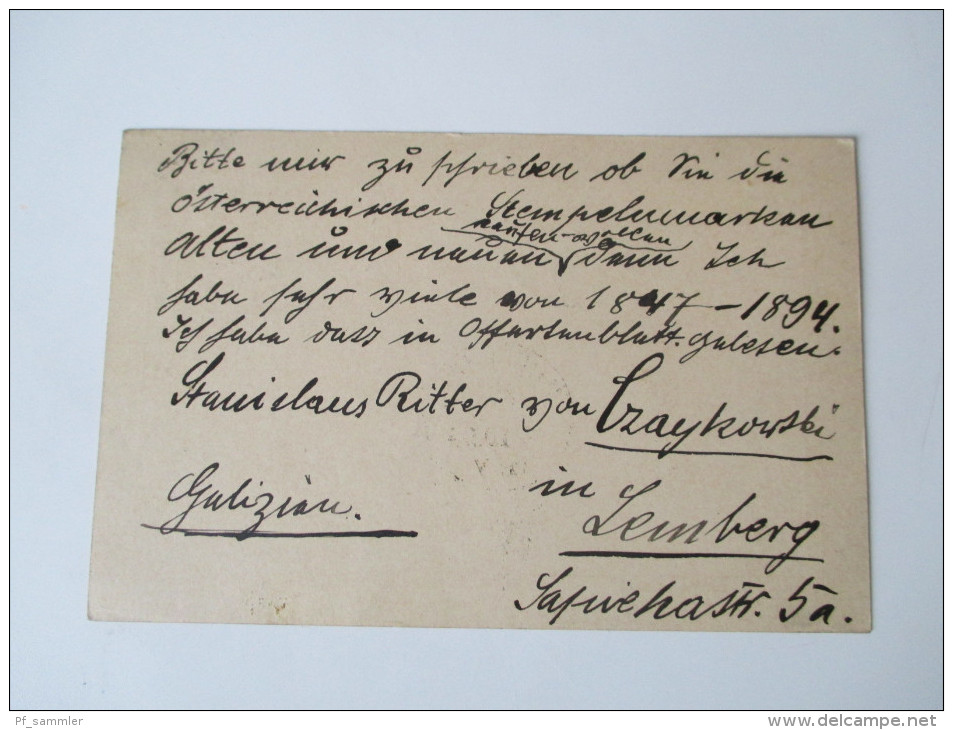 Bitte mir zu schrieben ob Sie die
österreichischen Stempelmarken
kaufen wollen
alten und neuen denn Ich
habe sehr viele von 1847-1894.
Ich habe dass in Offertenblatt. gelesen.
Stanislaus Ritter von Czaykowski
in
Galizien.
Lemberg
Sapiehastr. 5a.
Pf_sammler
www.delcampe.net